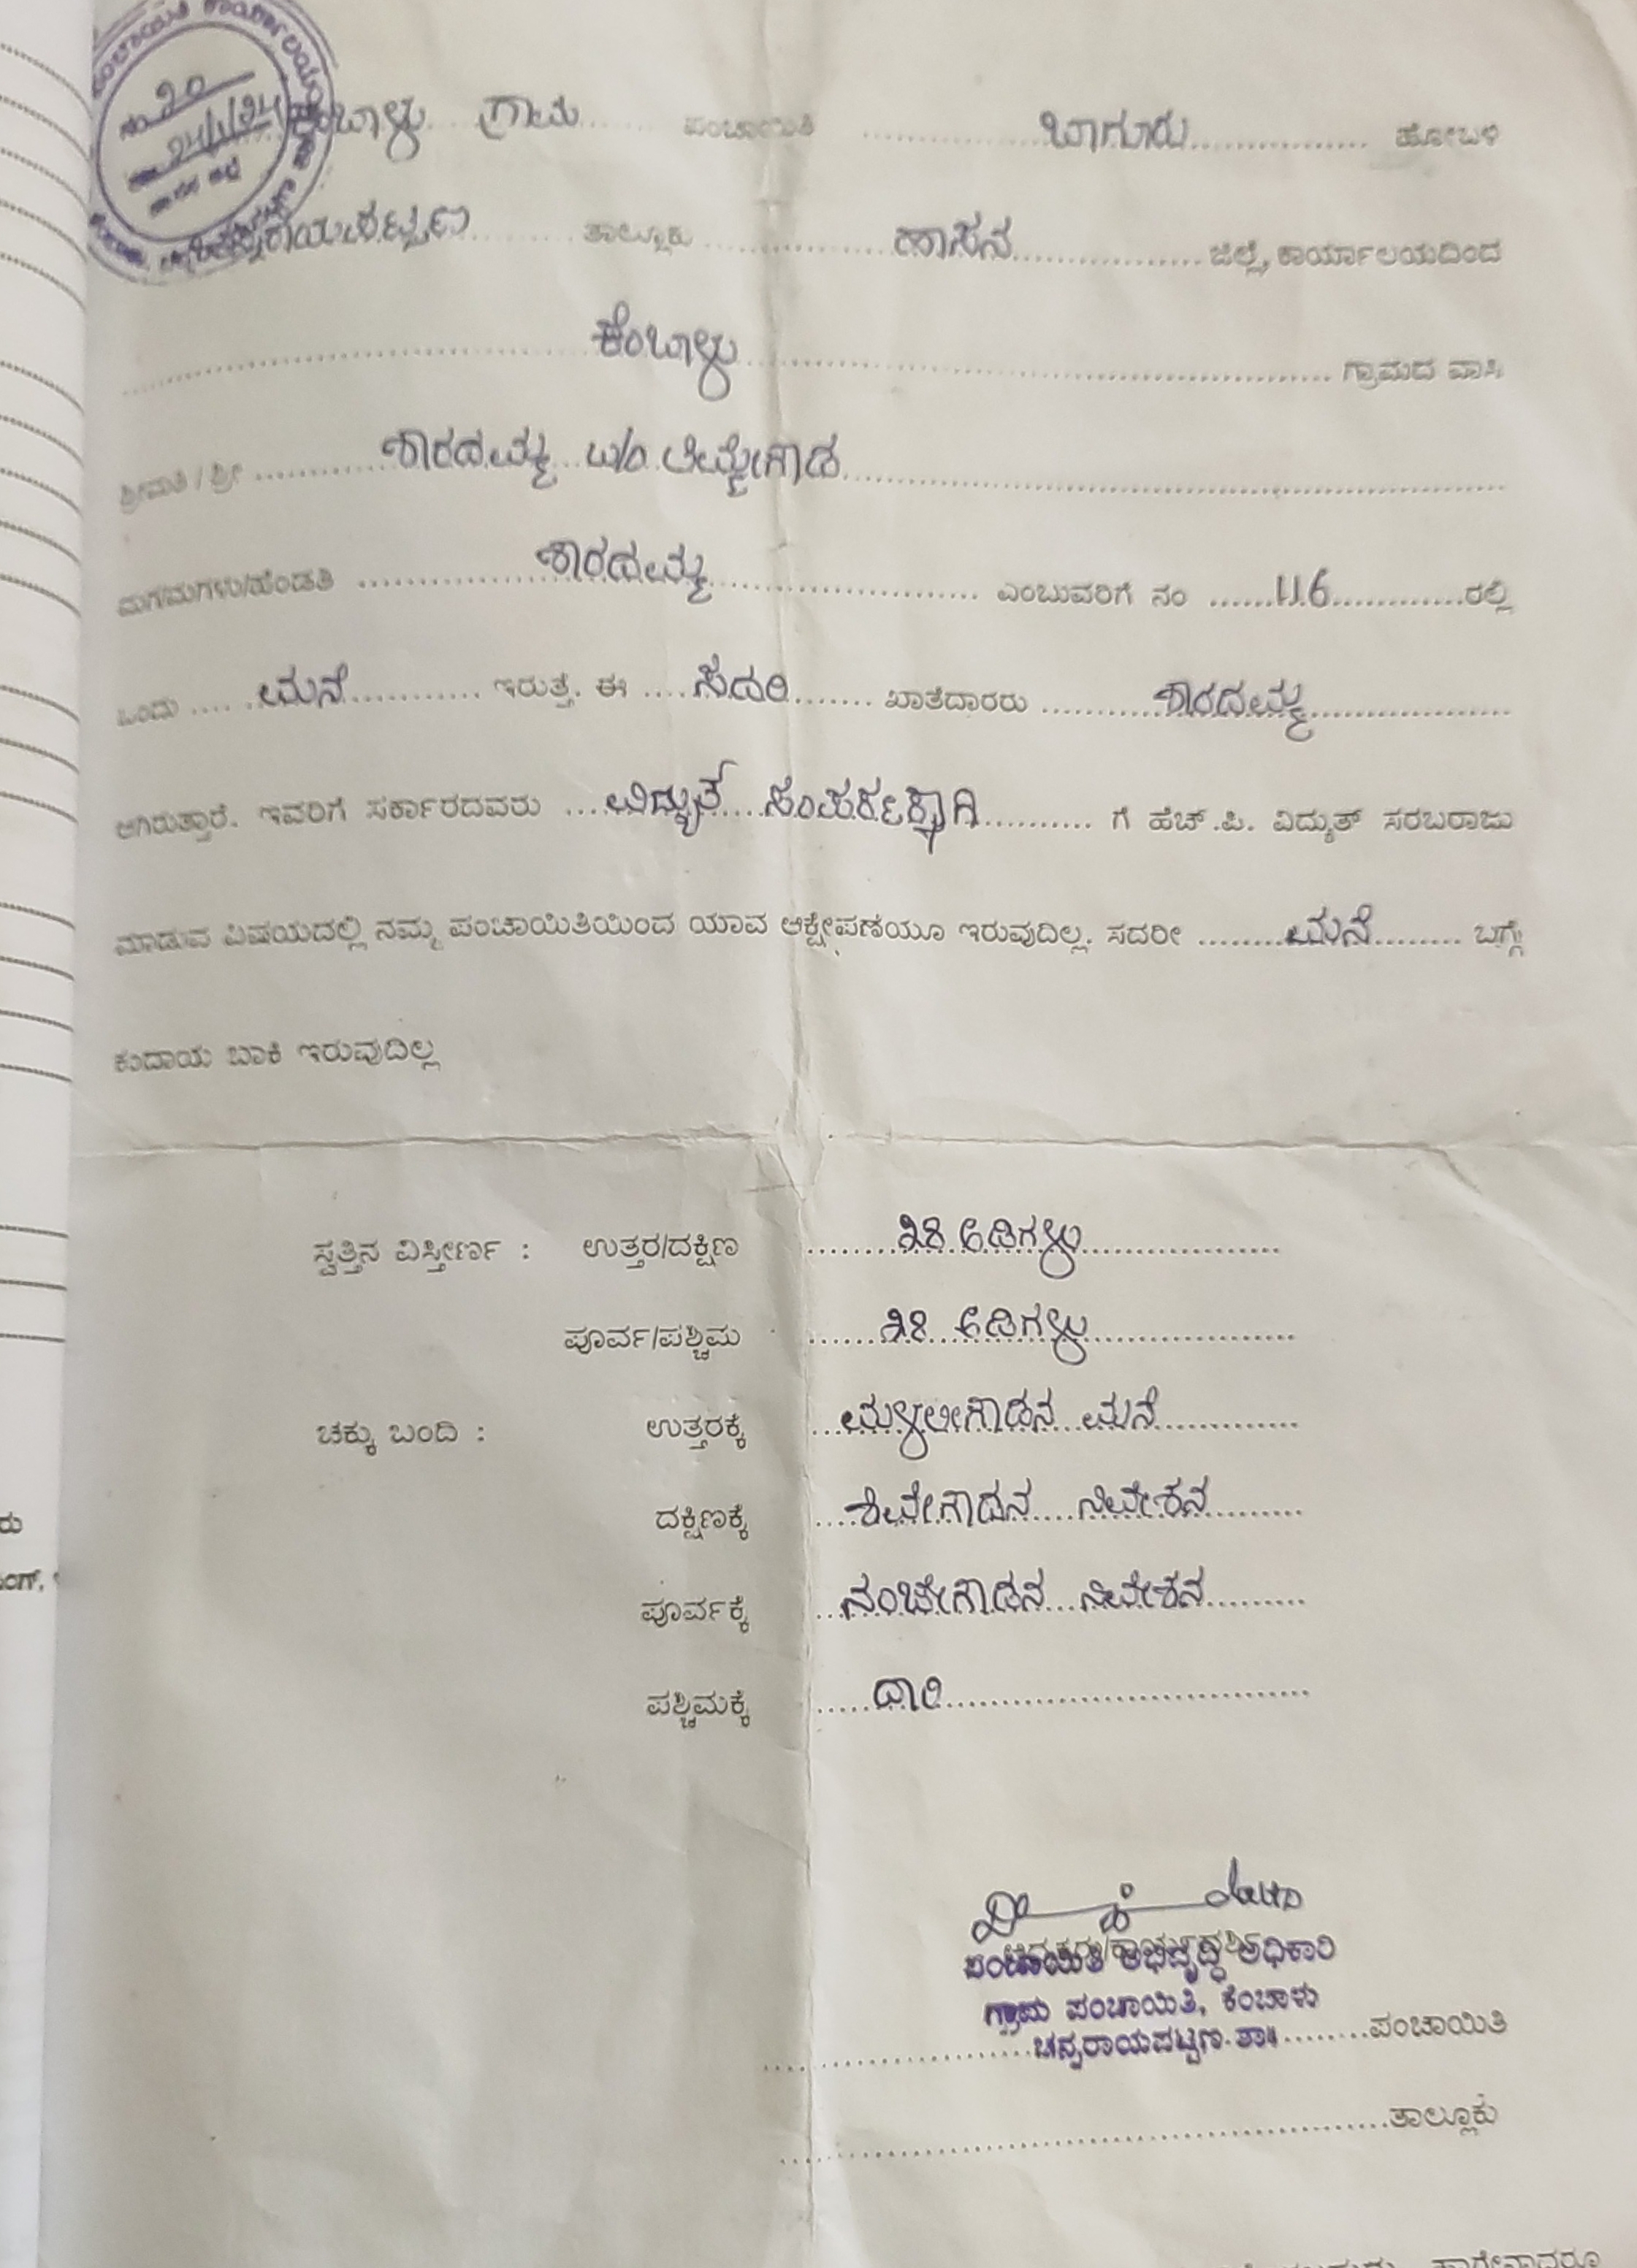 ಕೆಂಬಾಳು ಗ್ರಾಮ ಪಂಚಾಯಿತಿ ಬಾಗೂರು ಹೋಬಳಿ
ಚನ್ನರಾಯಪಟ್ಟಣ ತಾಲ್ಲೂಕು ಹಾಸನ ಜಿಲ್ಲೆ, ಕಾರ್ಯಾಲಯದಿಂದ
ಕೆಂಬಾಳು ಗ್ರಾಮದ ವಾಸಿ
ಶ್ರೀಮತಿ / ಶ್ರೀ ಶಾರದಮ್ಮ W/o ತಿಮ್ಮೇಗೌಡ
ಮಗ/ಮಗಳು/ಹೆಂಡತಿ ಶಾರದಮ್ಮ ಎಂಬುವರಿಗೆ ನಂ 116 ರಲ್ಲಿ
ಒಂದು ಮನೆ ಇರುತ್ತೆ. ಈ ಸದರಿ ಖಾತೆದಾರರು ಶಾರದಮ್ಮ
ಆಗಿರುತ್ತಾರೆ. ಇವರಿಗೆ ಸರ್ಕಾರದವರು ವಿದ್ಯುತ್ ಸಂಪರ್ಕಕ್ಕಾಗಿ ಗೆ ಹೆಚ್.ಪಿ. ವಿದ್ಯುತ್ ಸರಬರಾಜು
ಮಾಡುವ ವಿಷಯದಲ್ಲಿ ನಮ್ಮ ಪಂಚಾಯಿತಿಯಿಂದ ಯಾವ ಆಕ್ಷೇಪಣೆಯೂ ಇರುವುದಿಲ್ಲ. ಸದರೀ ಮನೆ ಬಗ್ಗೆ
ಕಂದಾಯ ಬಾಕಿ ಇರುವುದಿಲ್ಲ
ಸ್ವತ್ತಿನ ವಿಸ್ತೀರ್ಣ : ಉತ್ತರ/ದಕ್ಷಿಣ ಅಡಿಗಳು
ಪೂರ್ವ/ಪಶ್ಚಿಮ ಅಡಿಗಳು
ಚಕ್ಕು ಬಂದಿ : ಉತ್ತರಕ್ಕೆ ಮನೆ
ದಕ್ಷಿಣಕ್ಕೆ ಶಿವೇಗೌಡನ ನಿವೇಶನ
ಪೂರ್ವಕ್ಕೆ ನಂಜೇಗೌಡನ ನಿವೇಶನ
ಪಶ್ಚಿಮಕ್ಕೆ ದಾರಿ
ಪಂಚಾಯಿತಿ ಅಭಿವೃದ್ಧಿ ಅಧಿಕಾರಿ
ಗ್ರಾಮ ಪಂಚಾಯಿತಿ, ಕೆಂಬಾಳು
ಚನ್ನರಾಯಪಟ್ಟಣ ತಾ॥ ಪಂಚಾಯಿತಿ
ತಾಲ್ಲೂಕು